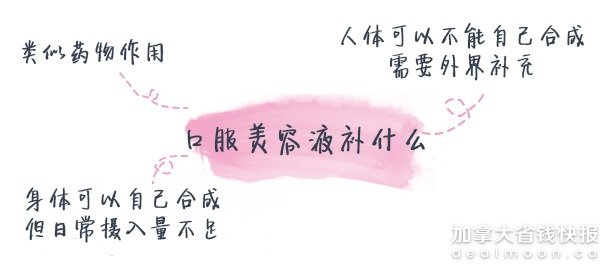 类似药物作用
人体可以不能自己合成
需要外界补充
口服美容液补什么
身体可以自己合成
但日常摄入量不足
加拿大省钱快报
dealmoon.ca